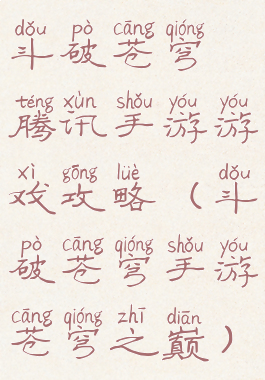 dǒu pò cāng qióng
斗破苍穹
téng xùn shǒu yóu yóu
腾讯手游游
xì gōng lüè dǒu
戏攻略（斗
pò cāng qióng shǒu yóu
破苍穹手游
cāng qióng zhī diān
苍穹之巅）